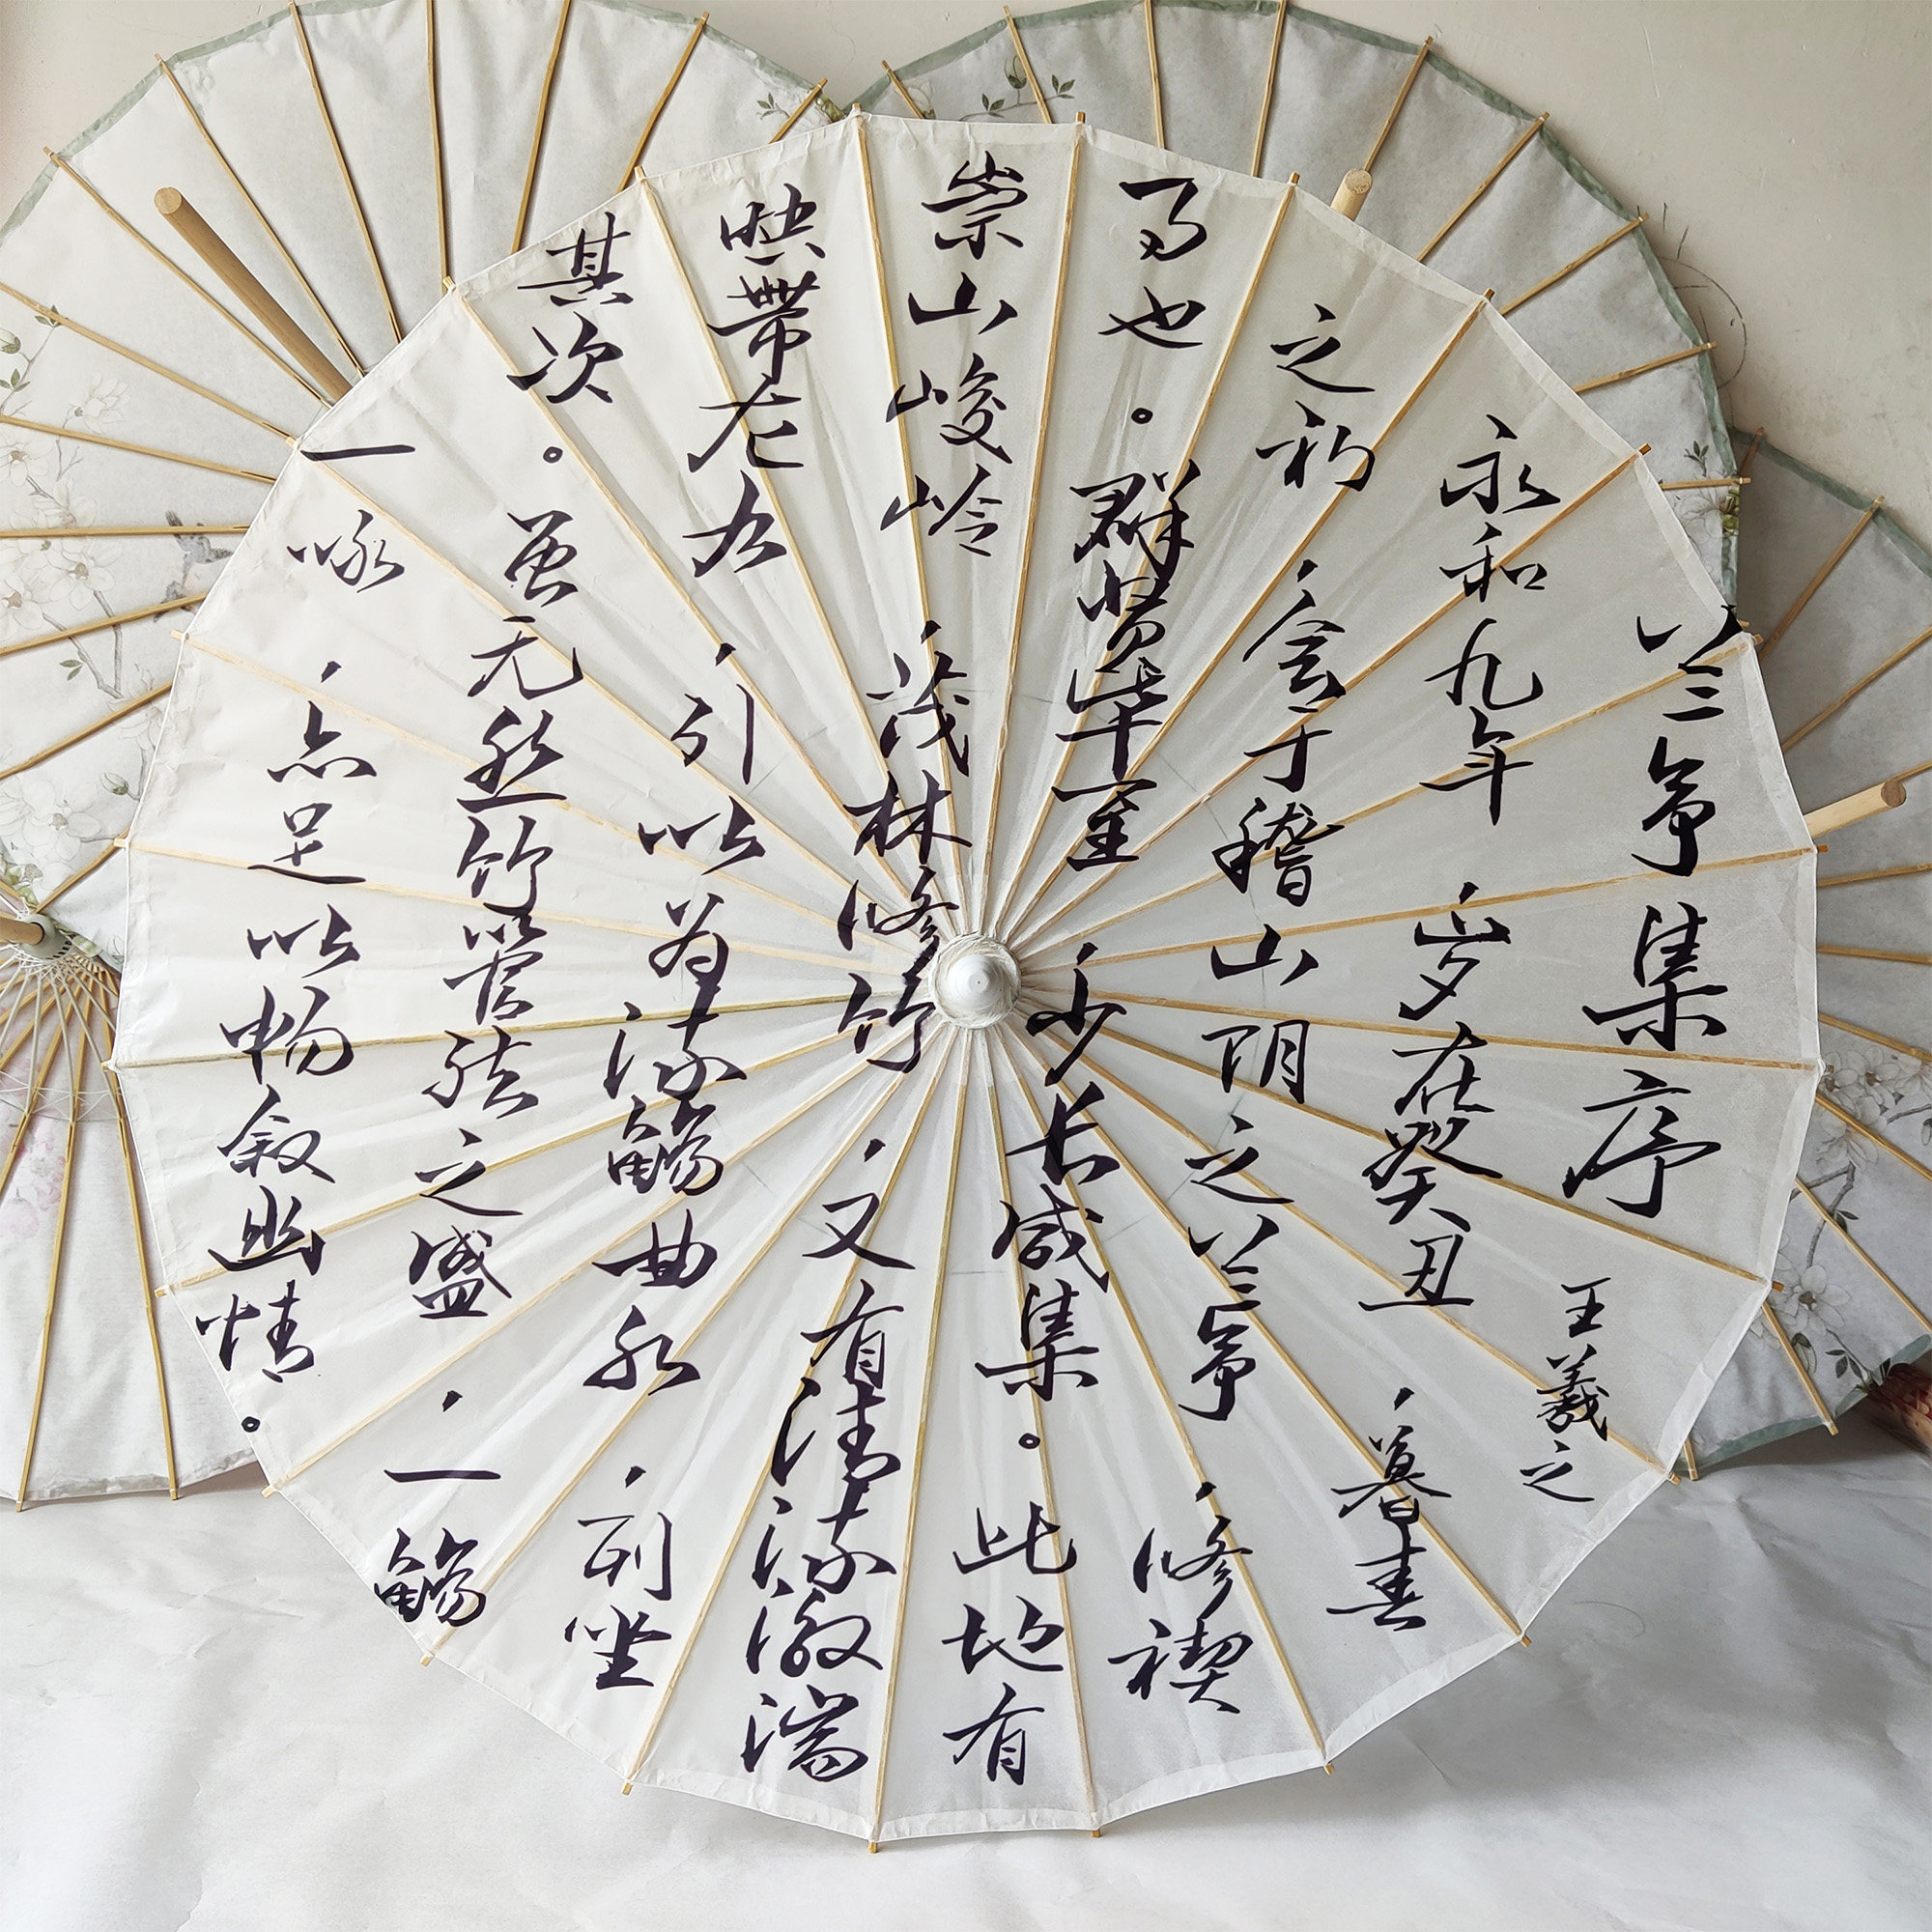 兰亭集序 王羲之
永和九年，岁在癸丑，暮春
之初，会于稽山阴之兰亭，修禊
事也。群贤毕至，少长咸集。此地有
崇山峻岭，茂林修竹，又有清流激湍
映带左右，引以为流觞曲水，列坐
其次。虽无丝竹管弦之盛，一觞
一咏，亦足以畅叙幽情。